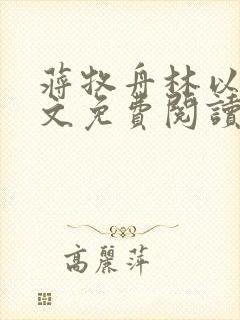 蔣牧舟林以
文免費閱讀
高麗萍